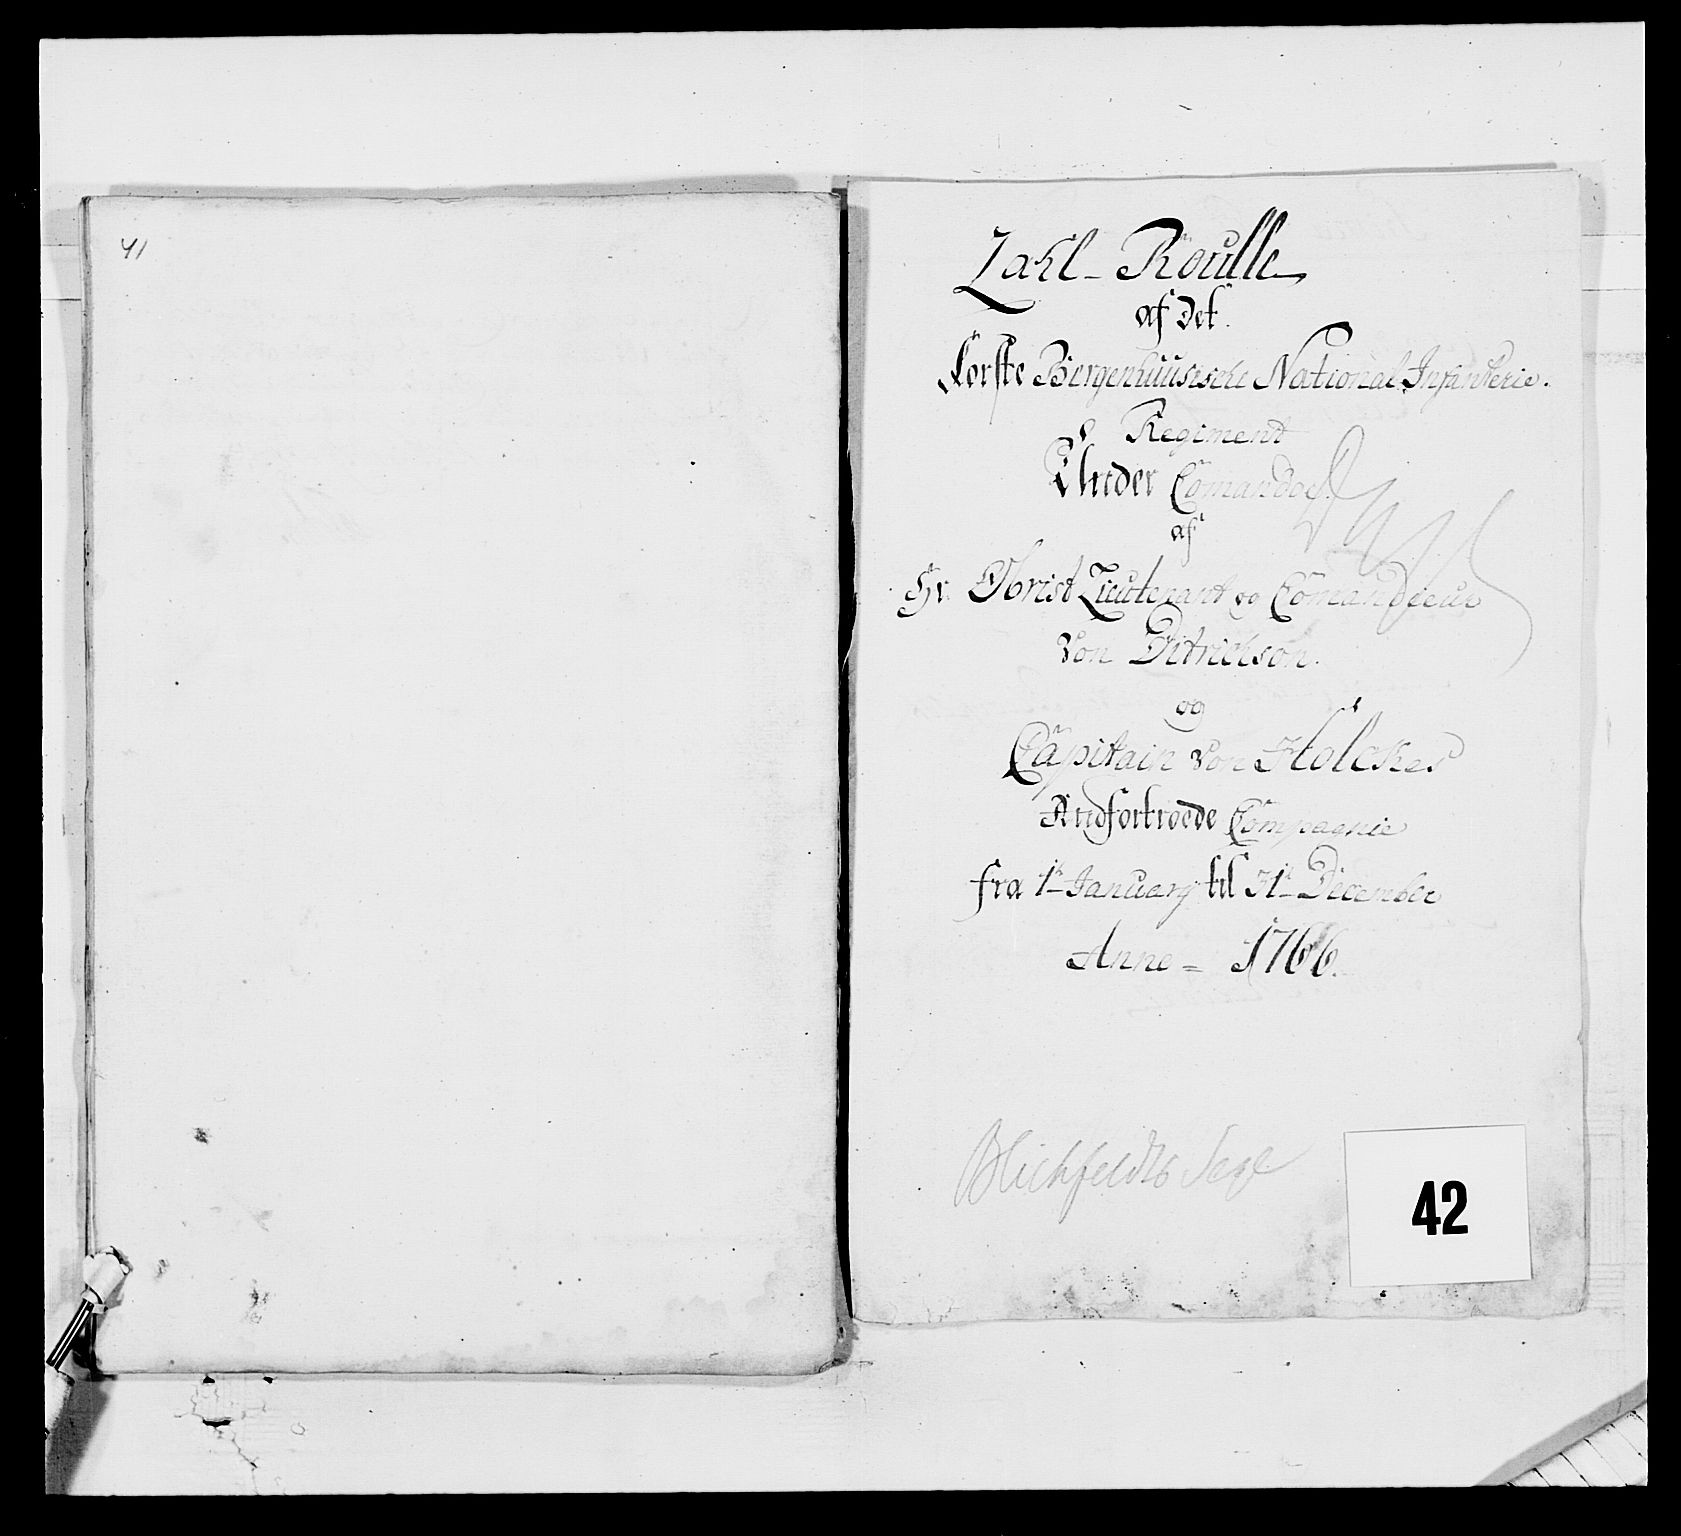 41
Zahl-Roulle
af Det
Første Bergenhuusische National Infanterie.
Regiment
Under Comando
af
Hr. Obrist Lieutenant og Comandieur
Von Ditrichson.
og
Capitain von Holckes
Andfortroede Compagnie
fra 1te January til 31te December
Anno = 1766.
42